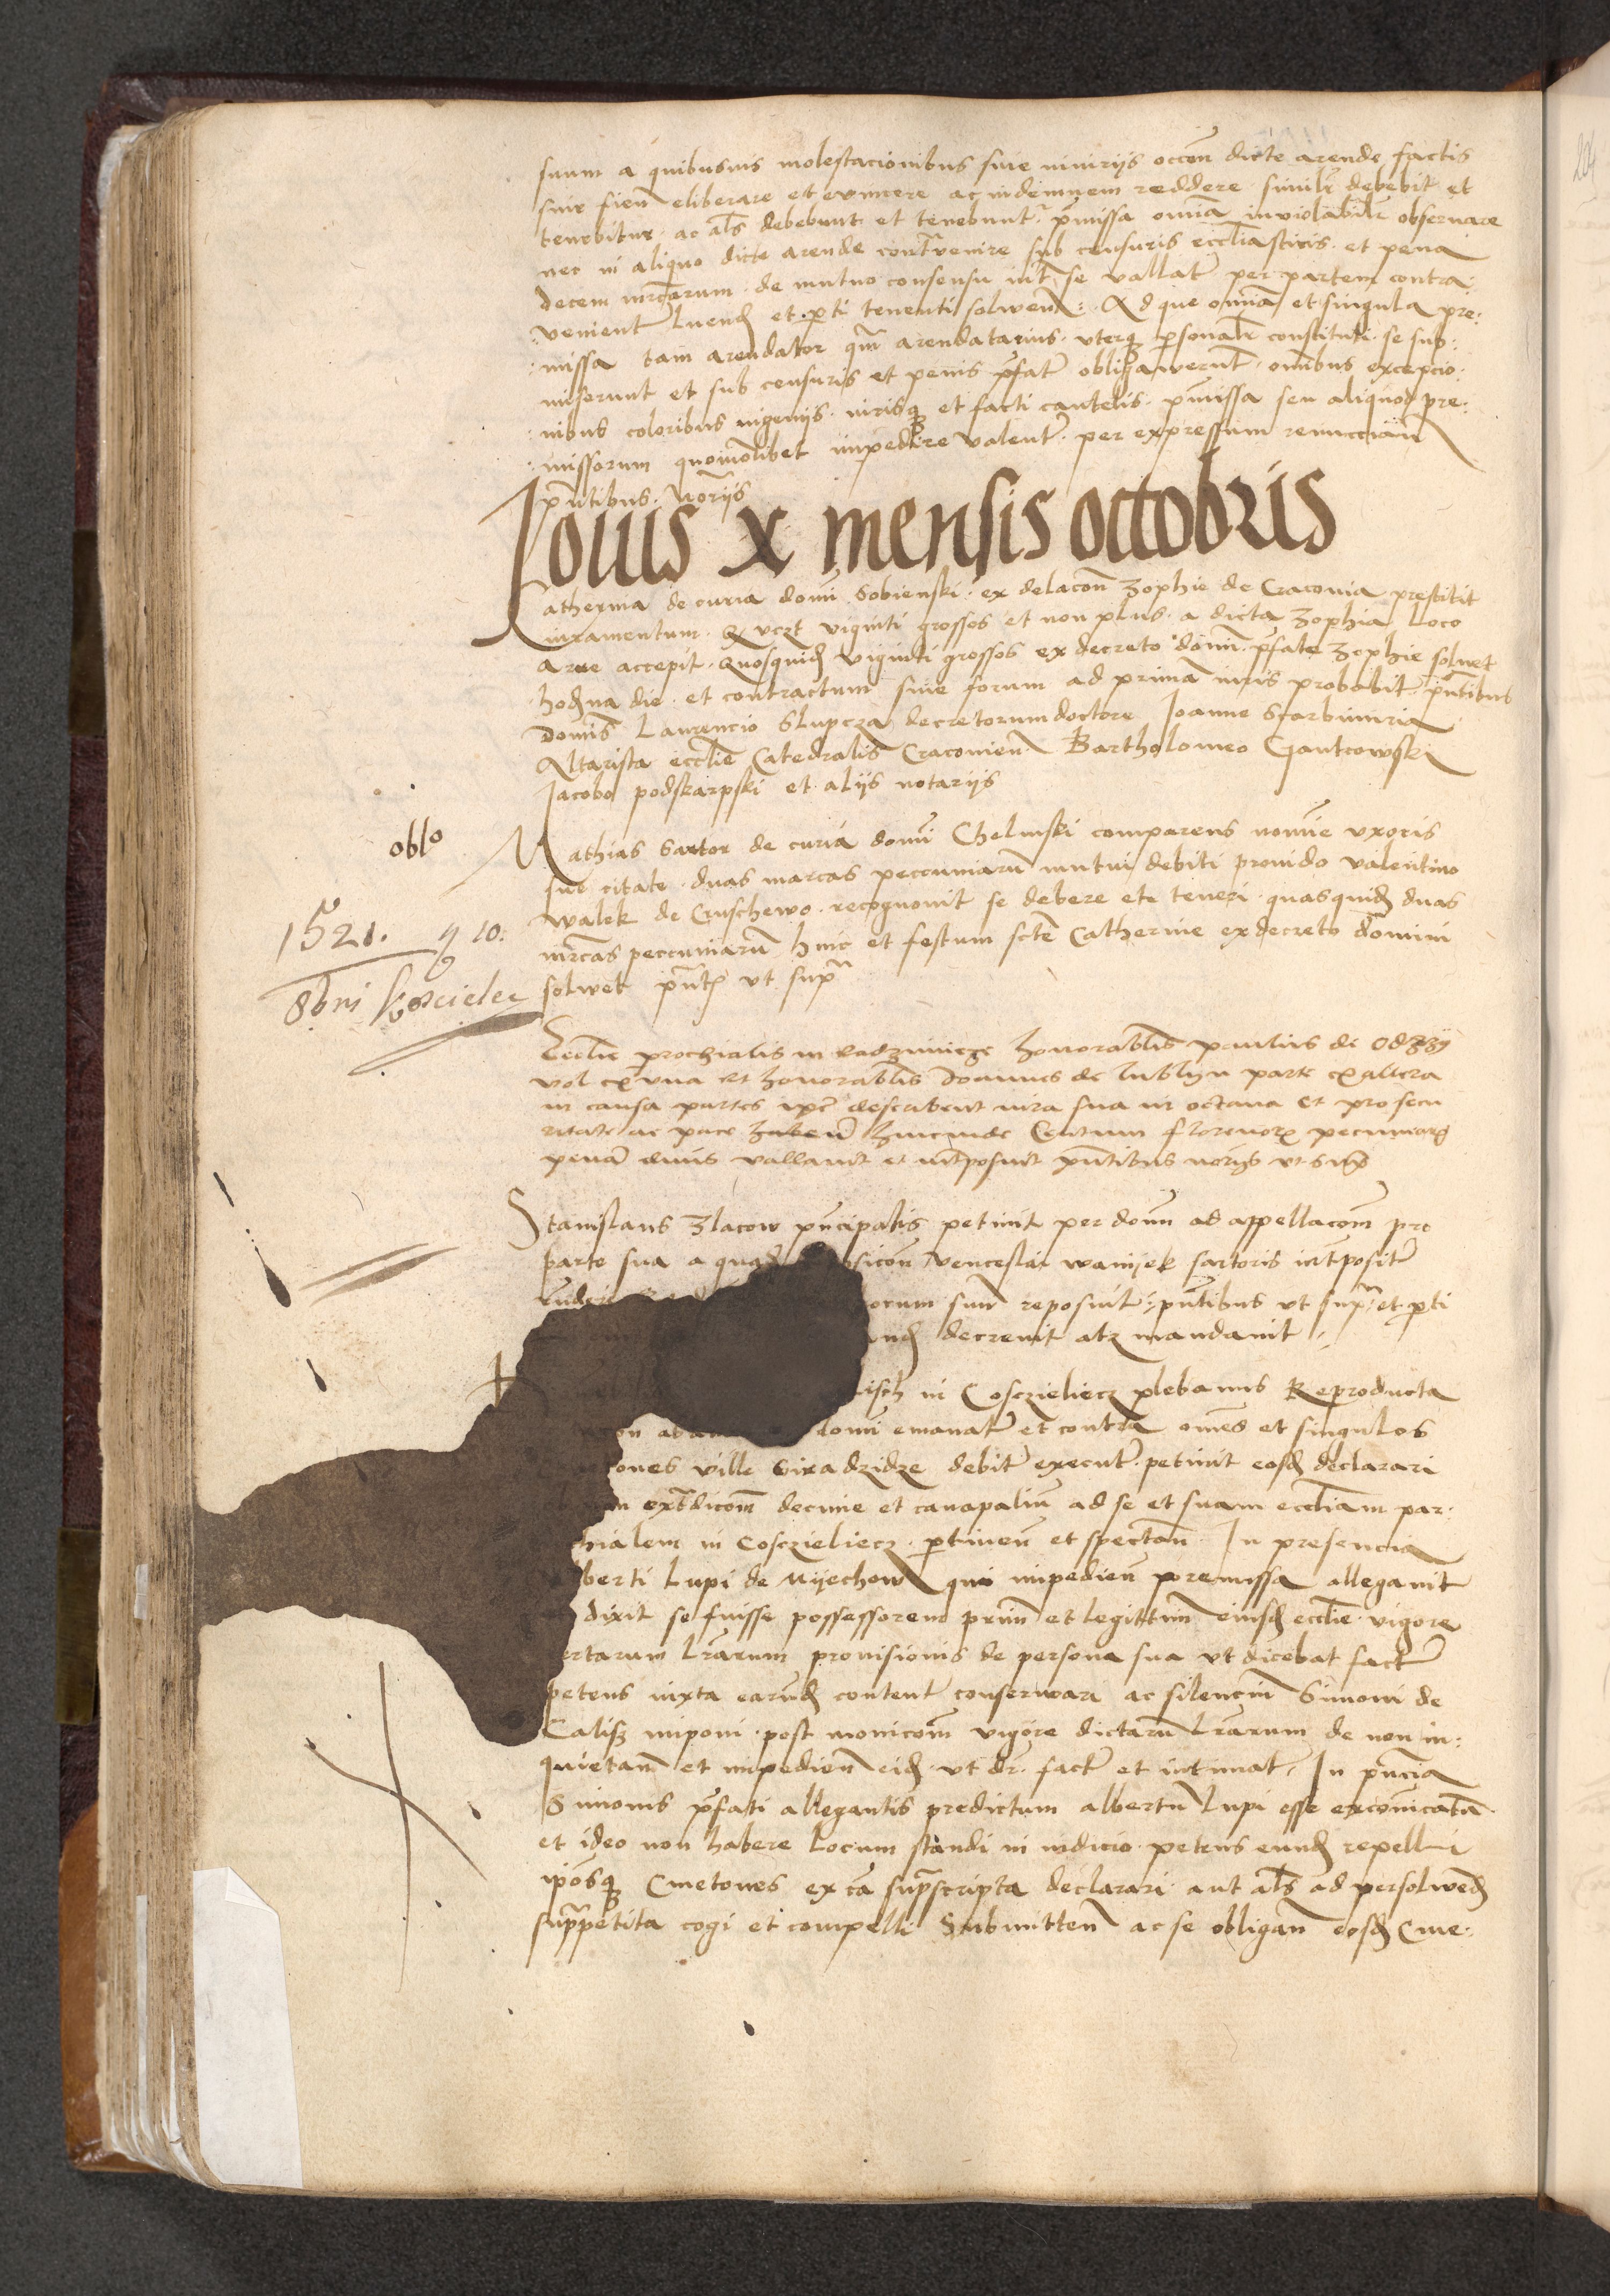 suum a quibusuis molestacionibus siue iniuriis occen dicte arende factis
siue fien eliberare et euincere ac indemnem reddere simili debebit et
tenebitur ac als debebunt et tenebunt pmissa omia inuiolabilr obseruare
nec in aliquo dicte arende contrauenire sub censuris eccliasticis et pena
decem mrcarum de mutuo consensu int se vallat per partem contra
venient luend et pti tenenti soluen Ad que omia et singula pre
missa tam arendator qm arendatarius vterq psonalr constituti se sub
miserunt et sub censuris et penis pfat obligauerunt omibus excepcio
nibus coloribus ingeniis iurisq et facti cautelis pmissa seu aliquod pre
missorum quomolibet impedire valent per expressum renuncian
pntibus noriis
Iouis x mensis octobris
Catherina de curia domi Sobienski ex delacon Zophie de Cracouia prestitit
iuramentum Q vczt viginti grossos et non plus a dicta Zophia loco
arre accepit Quosquid viginti grossos ex decreto domi pfate Zophie soluet
hodna die et contractum siue forum ad prima iuris probabit pntibus
Domis Laurencio Slupcza decretorum doctore Ioanne Scarbimiria
Altarista ecclie Catedralis Cracouien Bartholomeo Gantcowski
Iacobo podskarpski et aliis notariis
oblo
Mathias Sartor de curia domi Chelmski comparens nomie vxoris
sue citate duas marcas peccuniaru mutui debiti prouido valentino
walek de Cruschewo recognouit se debere ete teneri quasquid duas
mrcas peccuniaru hinc et festum scte Catherine ex decreto domini
soluet pnt vt supra
1521. 9 10.
Ecclie prochialis in Radzimicze honorablis paulus de Odrzy
vol ex vna et honorablis Ioannes de lublyn parte ex altera
in causa partes ipe describent iura sua in octaua et pro secu
ritate ac pace haben hincinde Centum florenor pecuniarq
penam dnus vallauit et intposuit pntibus noriis vt supra
Stanislaus Zlacow pncipalis petiuit per domi ad appellacom pro
parte sua a quad sicon venceslai waniek sartoris intposit
orum suu reposuit pntibus vt supra et pti
and decreuit atq mandauit
lisch in Cosczieliecz plebanus Reproducta
domi emanat et contra omes et singulos
ones ville Siradzidze debite execut petiuit eosd declarari
non extdicom decime et canapaliu ad se et suam eccliam par
hialem in Cosczieliecz ptinen et spectan In presencia
berti Lupi de Myechow qui impedien premissa allegauit
dixit se fuisse possessorem primi et legittim eiusd ecclie vigore
ertarum lrarum prouisionis de persona sua vt dicebat fact
petens iuxta earund content conseruari ac silencium Simoni de
Calisz imponi post monicom vigore dictaru lrarum de non in
quietan et impedien eid vt dr fact et intimat In pncia
Simonis pfati allegantis predictum albertu Lupi esse excomicatu
et ideo non habere locum standi in iudicio petens eund repelli
iposq Cmetones ex ca suprascripta declarari aut als ad persoluend
suprapetita cogi et compelli Submitten ac se obligan eosd Cme